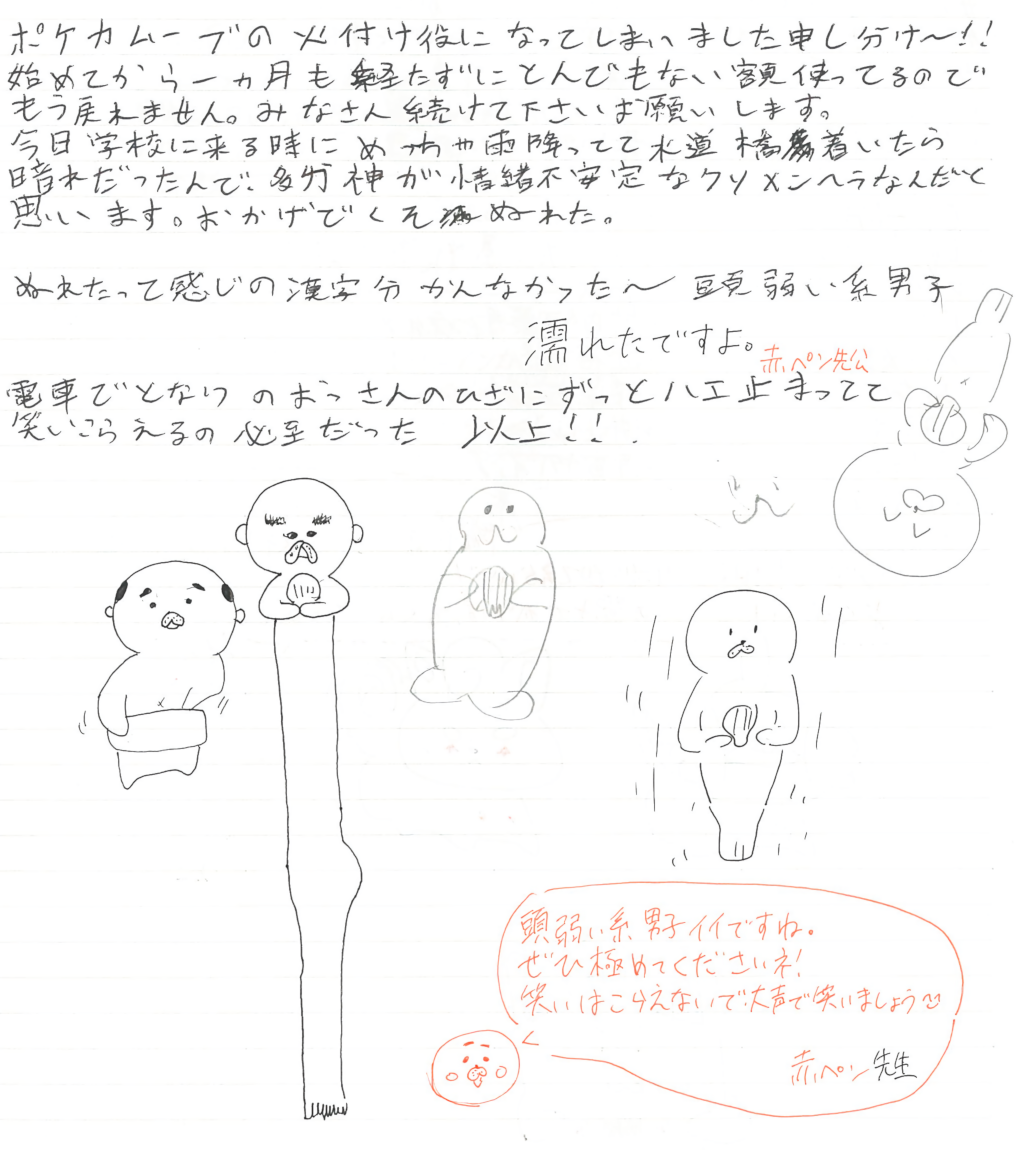 ポケカムーブの火付け役になってしまいました申し分け〜!!
始めてから一ヵ月も経たずにとんでもない額使ってるので
もう戻れません。みなさん続けて下さいお願いします。
今日学校に来る時にめっちゃ雨降ってて水道橋着いたら
晴れだったんで、多分神が情緒不安定なクソメンヘラなんだと
思います。おかげでくそぬれた。
ぬれたって感じの漢字分かんなかった〜 頭弱い系男子
濡れたですよ。
赤ペン先公
電車でとなりのおっさんのひざにずっとハエ止まってて
笑いこらえるの必至だった 以上!!.
頭弱い系男子イイですね。
ぜひ極めてくださいネ!
笑いはこらえないで大声で笑いましょう
赤ペン先生